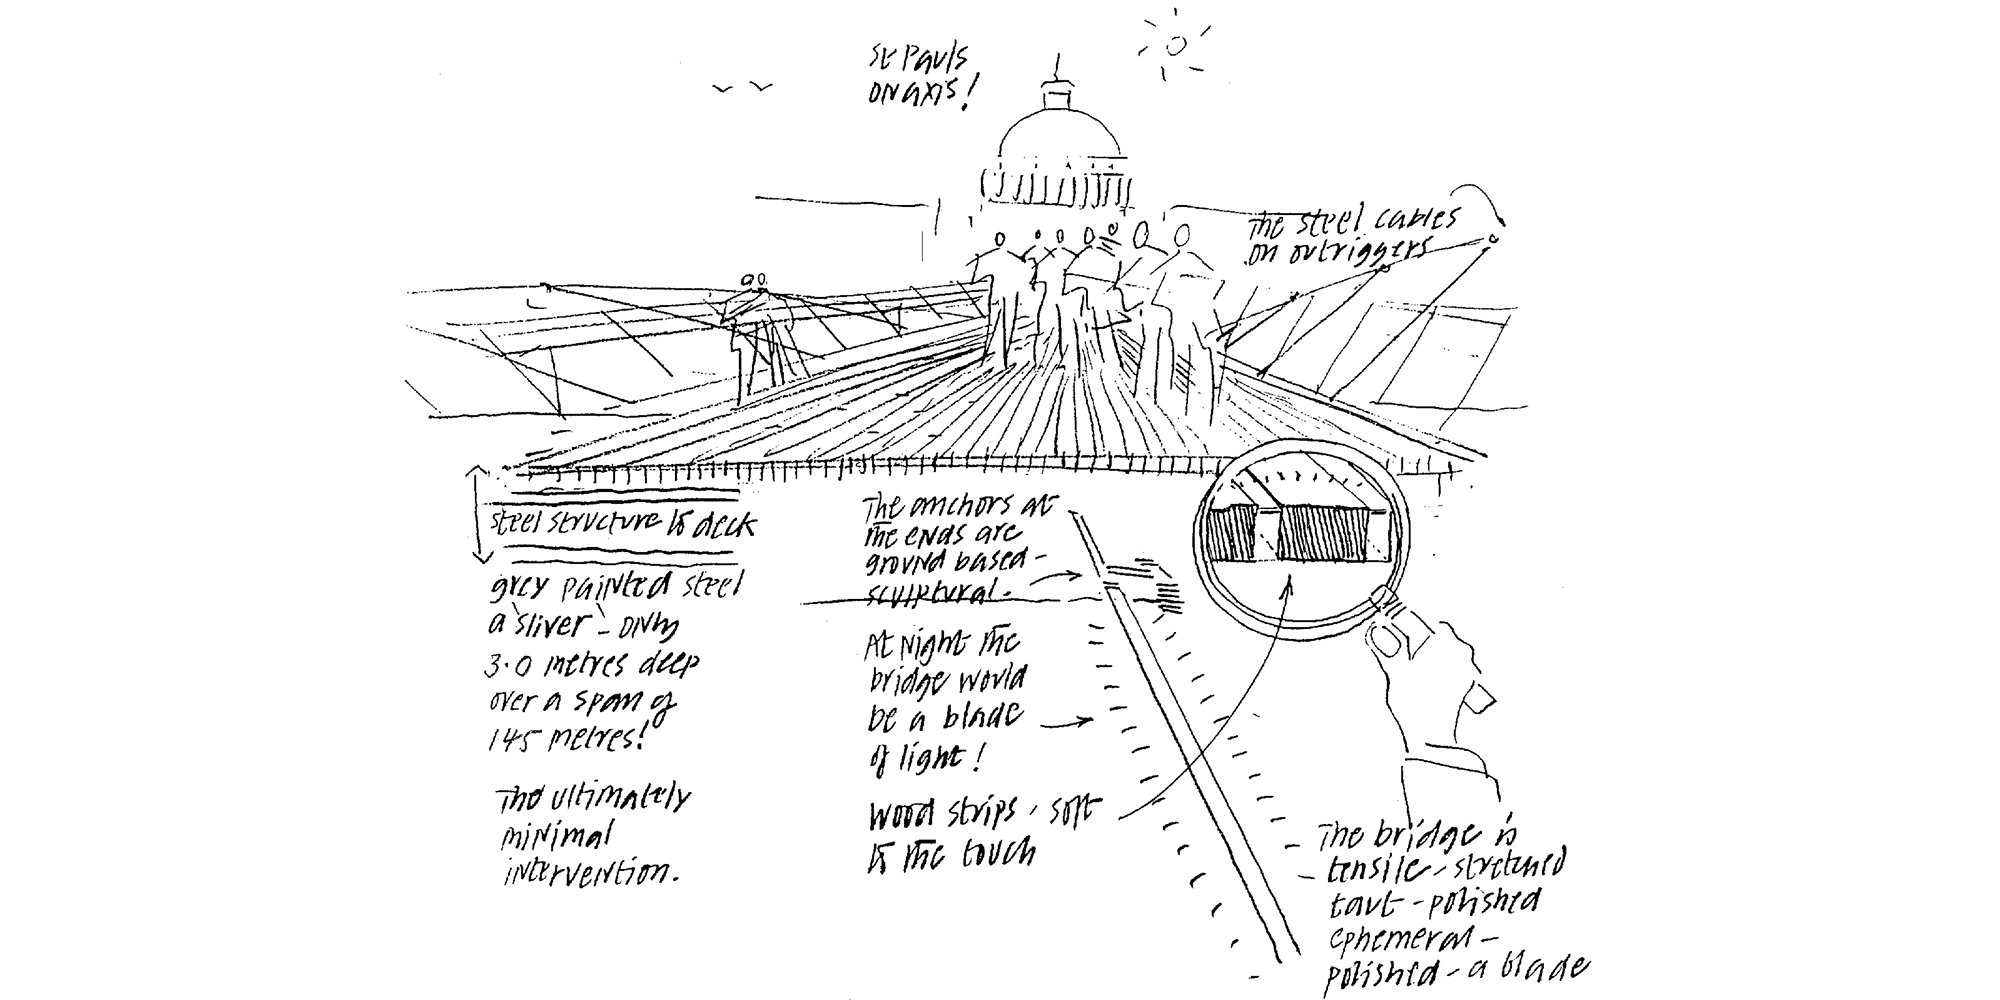 St Pauls
ON axis!
The steel cables
on outriggers
steel structure to deck
grey painted steel
a 'sliver' - only
3.0 metres deep
over a span of
145 metres!
The ultimately
minimal
intervention.
The anchors at
the ends are
ground based -
sculptural.
At Night the
bridge would
be a blade
of light!
Wood strips, soft
to the touch
The bridge is
tensile - stretched
taut - polished
ephemeral -
polished - a blade